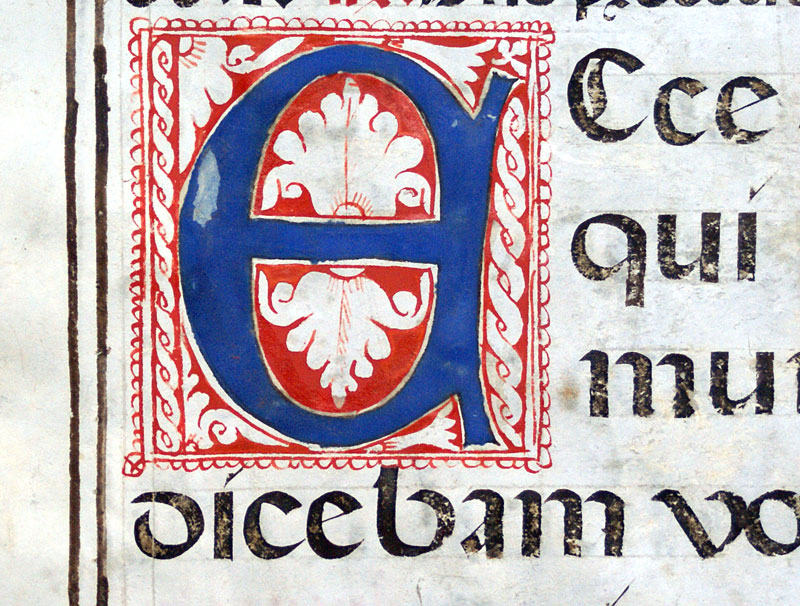 ECce
quí
mun
dícebam vo